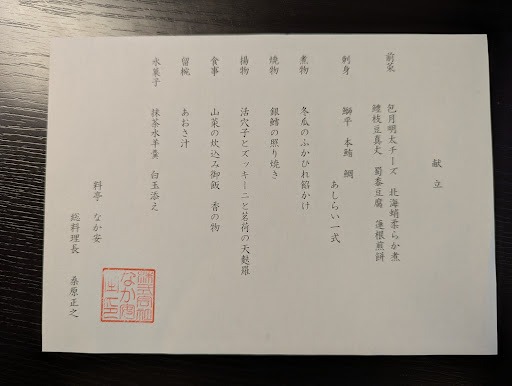 献立
前菜 包月明太チーズ 北海蛸柔らか煮
鱧枝豆真丈 蜀黍豆腐 蓮根煎餅
刺身 鰤平 本鮪 鯛 あしらい一式
煮物 冬瓜のふかひれ餡かけ
焼物 銀鱈の照り焼き
揚物 活穴子とズッキーニと茗荷の天麩羅
食事 山菜の炊込み御飯 香の物
留椀 あおさ汁
水菓子 抹茶水羊羹 白玉添え
料亭 なか安
総料理長 桑原正之